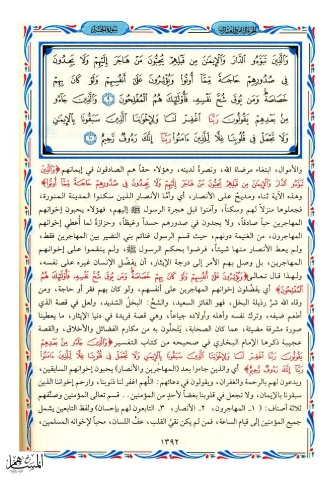 وَالَّذِينَ تَبَوَّءُو الدَّارَ وَالْإِيمَانَ مِن قَبْلِهِمْ يُحِبُّونَ مَنْ هَاجَرَ إِلَيْهِمْ وَلَا يَجِدُونَ
فِي صُدُورِهِمْ حَاجَةً مِّمَّا أُوتُوا وَيُؤْثِرُونَ عَلَى أَنفُسِهِمْ وَلَوْ كَانَ بِهِمْ
خَصَاصَةٌ وَمَن يُوقَ شُحَّ نَفْسِهِ فَأُولَئِكَ هُمُ الْمُفْلِحُونَ ٩ وَالَّذِينَ جَاءُو
مِن بَعْدِهِمْ يَقُولُونَ رَبَّنَا اغْفِرْ لَنَا وَلِإِخْوَانِنَا الَّذِينَ سَبَقُونَا بِالْإِيمَانِ
وَلَا تَجْعَلْ فِي قُلُوبِنَا غِلًّا لِّلَّذِينَ ءَامَنُوا رَبَّنَا إِنَّكَ رَءُوفٌ رَّحِيمٌ ١٠
والأموال، ابتغاء مرضاة الله، ونصرة لدينه، وهؤلاء حقاً هم الصادقون في إيمانهم ﴿وَالَّذِينَ
تَبَوَّءُو الدَّارَ وَالْإِيمَانَ مِن قَبْلِهِمْ يُحِبُّونَ مَنْ هَاجَرَ إِلَيْهِمْ وَلَا يَجِدُونَ فِي صُدُورِهِمْ حَاجَةً مِّمَّا أُوتُوا﴾
وهذه الآية ثناء ومديح على الأنصار، أي وأما الأنصار الذين سكنوا المدينة المنورة،
فجعلوها منزلاً لهم وسكناً، وآمنوا قبل هجرة الرسول ﷺ إليهم، فهؤلاء يحبون إخوانهم
المهاجرين حباً صادقاً، ولا يجدون في صدورهم حسداً وغيظاً، وحزازة لما أعطي إخوانهم
المهاجرون، من الغنيمة دونهم، حيث قسم الرسول غنائم بني النضير بين المهاجرين فقط،
ولم يعط الأنصار منها شيئاً، فرضوا بحكم الرسول ﷺ، ولم ينقموا على إخوانهم
المهاجرين، بل وصل بهم الأمر إلى درجة الإيثار، أن يفضل الإنسان غيره على نفسه،
ولهذا قال تعالى ﴿وَيُؤْثِرُونَ عَلَى أَنفُسِهِمْ وَلَوْ كَانَ بِهِمْ خَصَاصَةٌ وَمَن يُوقَ شُحَّ نَفْسِهِ فَأُولَئِكَ هُمُ
الْمُفْلِحُونَ﴾ أي يفضلون إخوانهم المهاجرين على أنفسهم، ولو كان بهم فقر أو حاجة، ومن
وقاه الله شر رذيلة البخل، فهو الفائز السعيد، والشح: البخل الشديد، ولعل في قصة الذي
أطعم ضيفه، وترك نفسه وأهله وأولاده جياعاً، وهي قصة فريدة في دنيا الإيثار، ما يعطينا
صورة مشرقة مضيئة، عما كان الصحابة، يتحلون به من مكارم الفضائل والأخلاق، والقصة
عجيبة ذكرها الإمام البخاري في صحيحه من كتاب التفسير ﴿وَالَّذِينَ جَاءُو مِن بَعْدِهِمْ
يَقُولُونَ رَبَّنَا اغْفِرْ لَنَا وَلِإِخْوَانِنَا الَّذِينَ سَبَقُونَا بِالْإِيمَانِ وَلَا تَجْعَلْ فِي قُلُوبِنَا غِلًّا لِّلَّذِينَ ءَامَنُوا
رَبَّنَا إِنَّكَ رَءُوفٌ رَّحِيمٌ﴾ أي والذين جاءوا بعد (المهاجرين والأنصار) يحبون إخوانهم السابقين،
ويدعون لهم بالرحمة والغفران، ويقولون في دعائهم: اللهم اغفر لنا ذنوبنا، وارحم إخواننا الذين
سبقونا بالإيمان، ولا تجعل في قلوبنا بغضاً لأحد من المؤمنين.. قسم تعالى المؤمنين وصنفهم
ثلاثة أصناف: (١. المهاجرون، ٢. الأنصار، ٣. التابعون لهم بإحسان) ولفظ التابعين يشمل
جميع المؤمنين إلى قيام الساعة، فمن لم يكن نقي القلب، عف اللسان، محباً لإخوانه المسلمين،
١٣٩٢